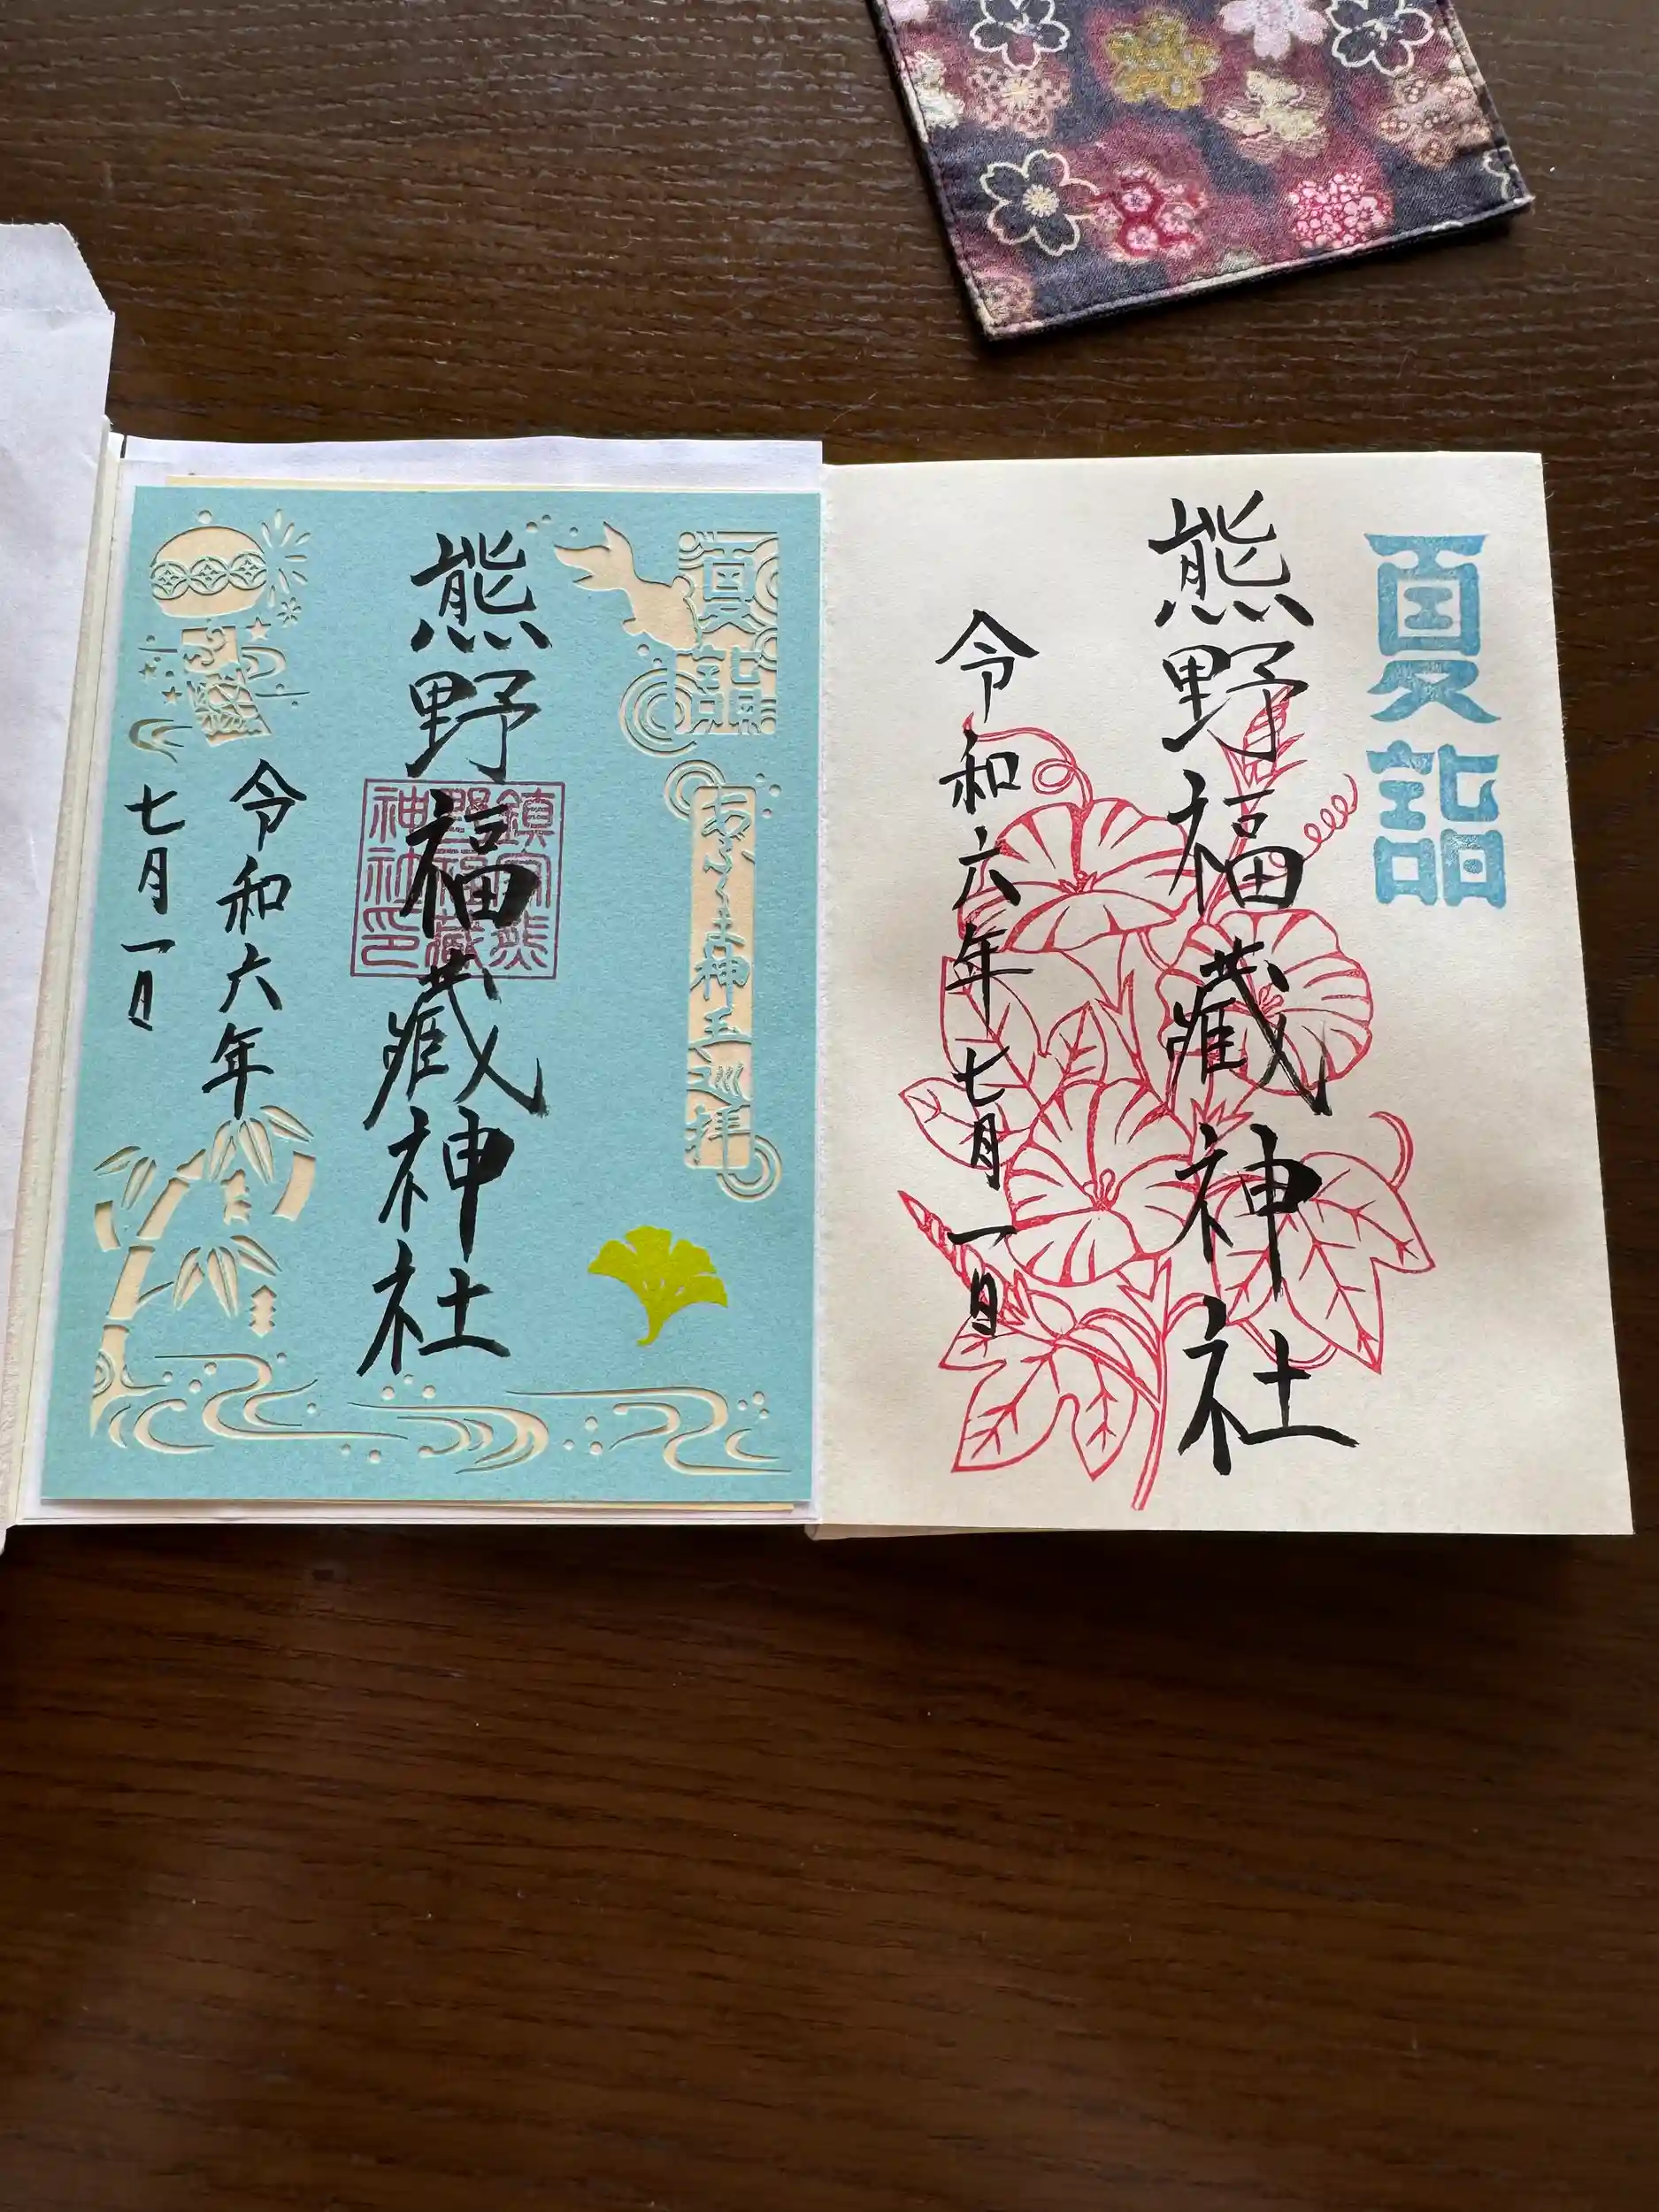 夏詣
熊野福藏神社
令和六年七月一日
夏詣
神玉巡拝
熊野福藏神社
鎮守熊
野福藏
神社印
令和六年
七月一日